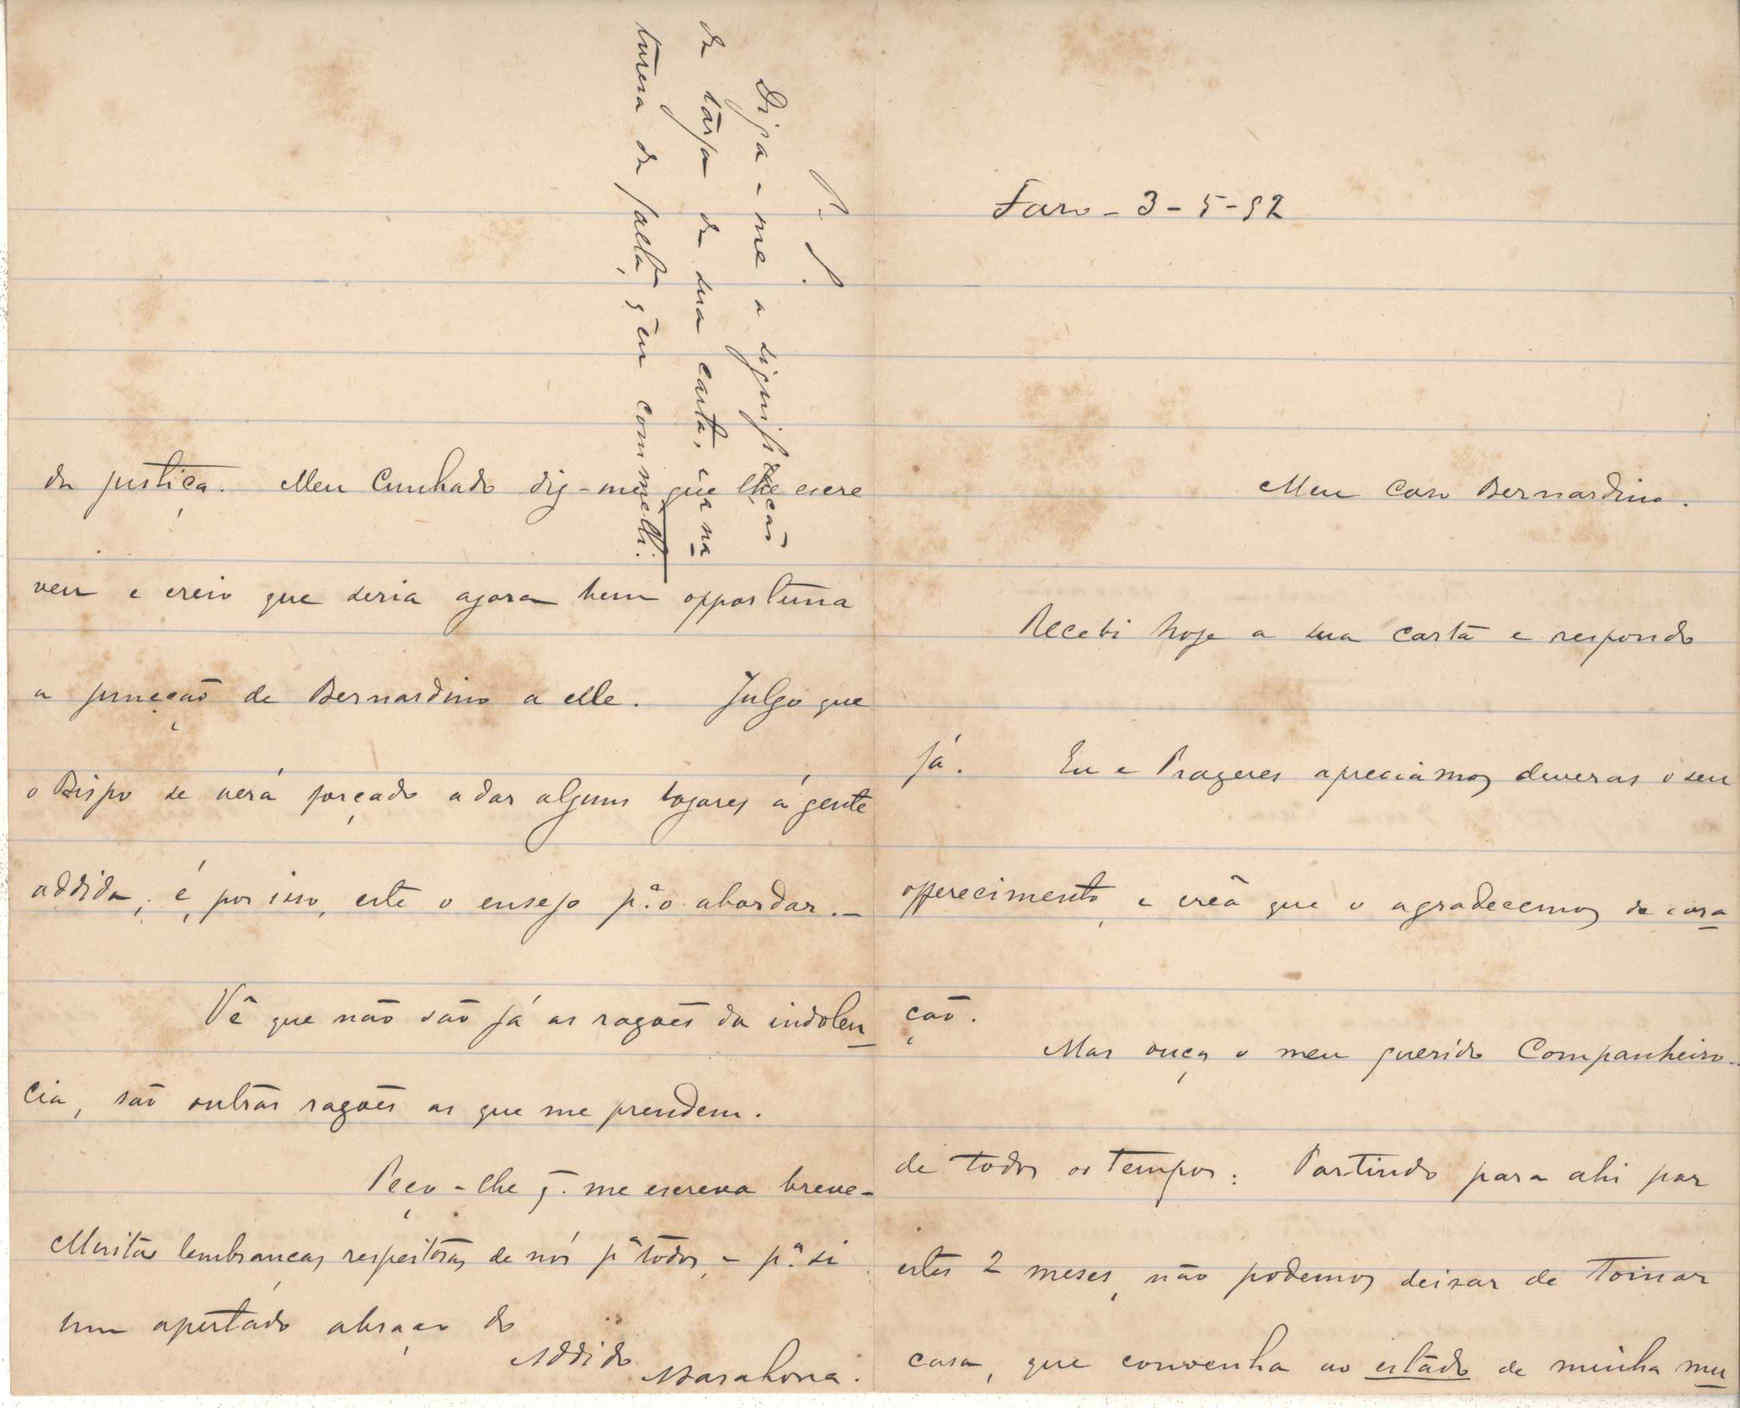 Faro - 3 - 5 - 92
Meu caro Bernardino.
Recebi hoje a sua carta e respondo
já. Eu e Prazeres apreciámos deveras o seu
offerecimento, e crêa que o agradecemos de cora
ção.
Mas ouça o meu querido Companheiro
de todos os tempos: Partindo para ahi por
estes 2 meses, não podemos deixar de tomar
casa, que convenha ao estado de minha mu
da justiça. Meu Cunhado diz-me que lhe escre
veu e creio que seria agora bem opportuna
a juncção de Bernardino a elle. Julgo que
o Bispo se verá forçado a dar alguns logares á gente
addida; é, por isso, este o ensejo p.ª o abordar. -
Vê que não são já as razões da indolen
cia, são outras razões as que me prendem.
Peço-lhe q. me escreva breve-
Muitas lembranças respeitosas de nós pª todos, e p.ª si
um apertado abraço do
Addido
Marahona.
P. S.
Diga-me a significação
da tarja da sua carta, e a na
tureza da falta, q eu commetti.